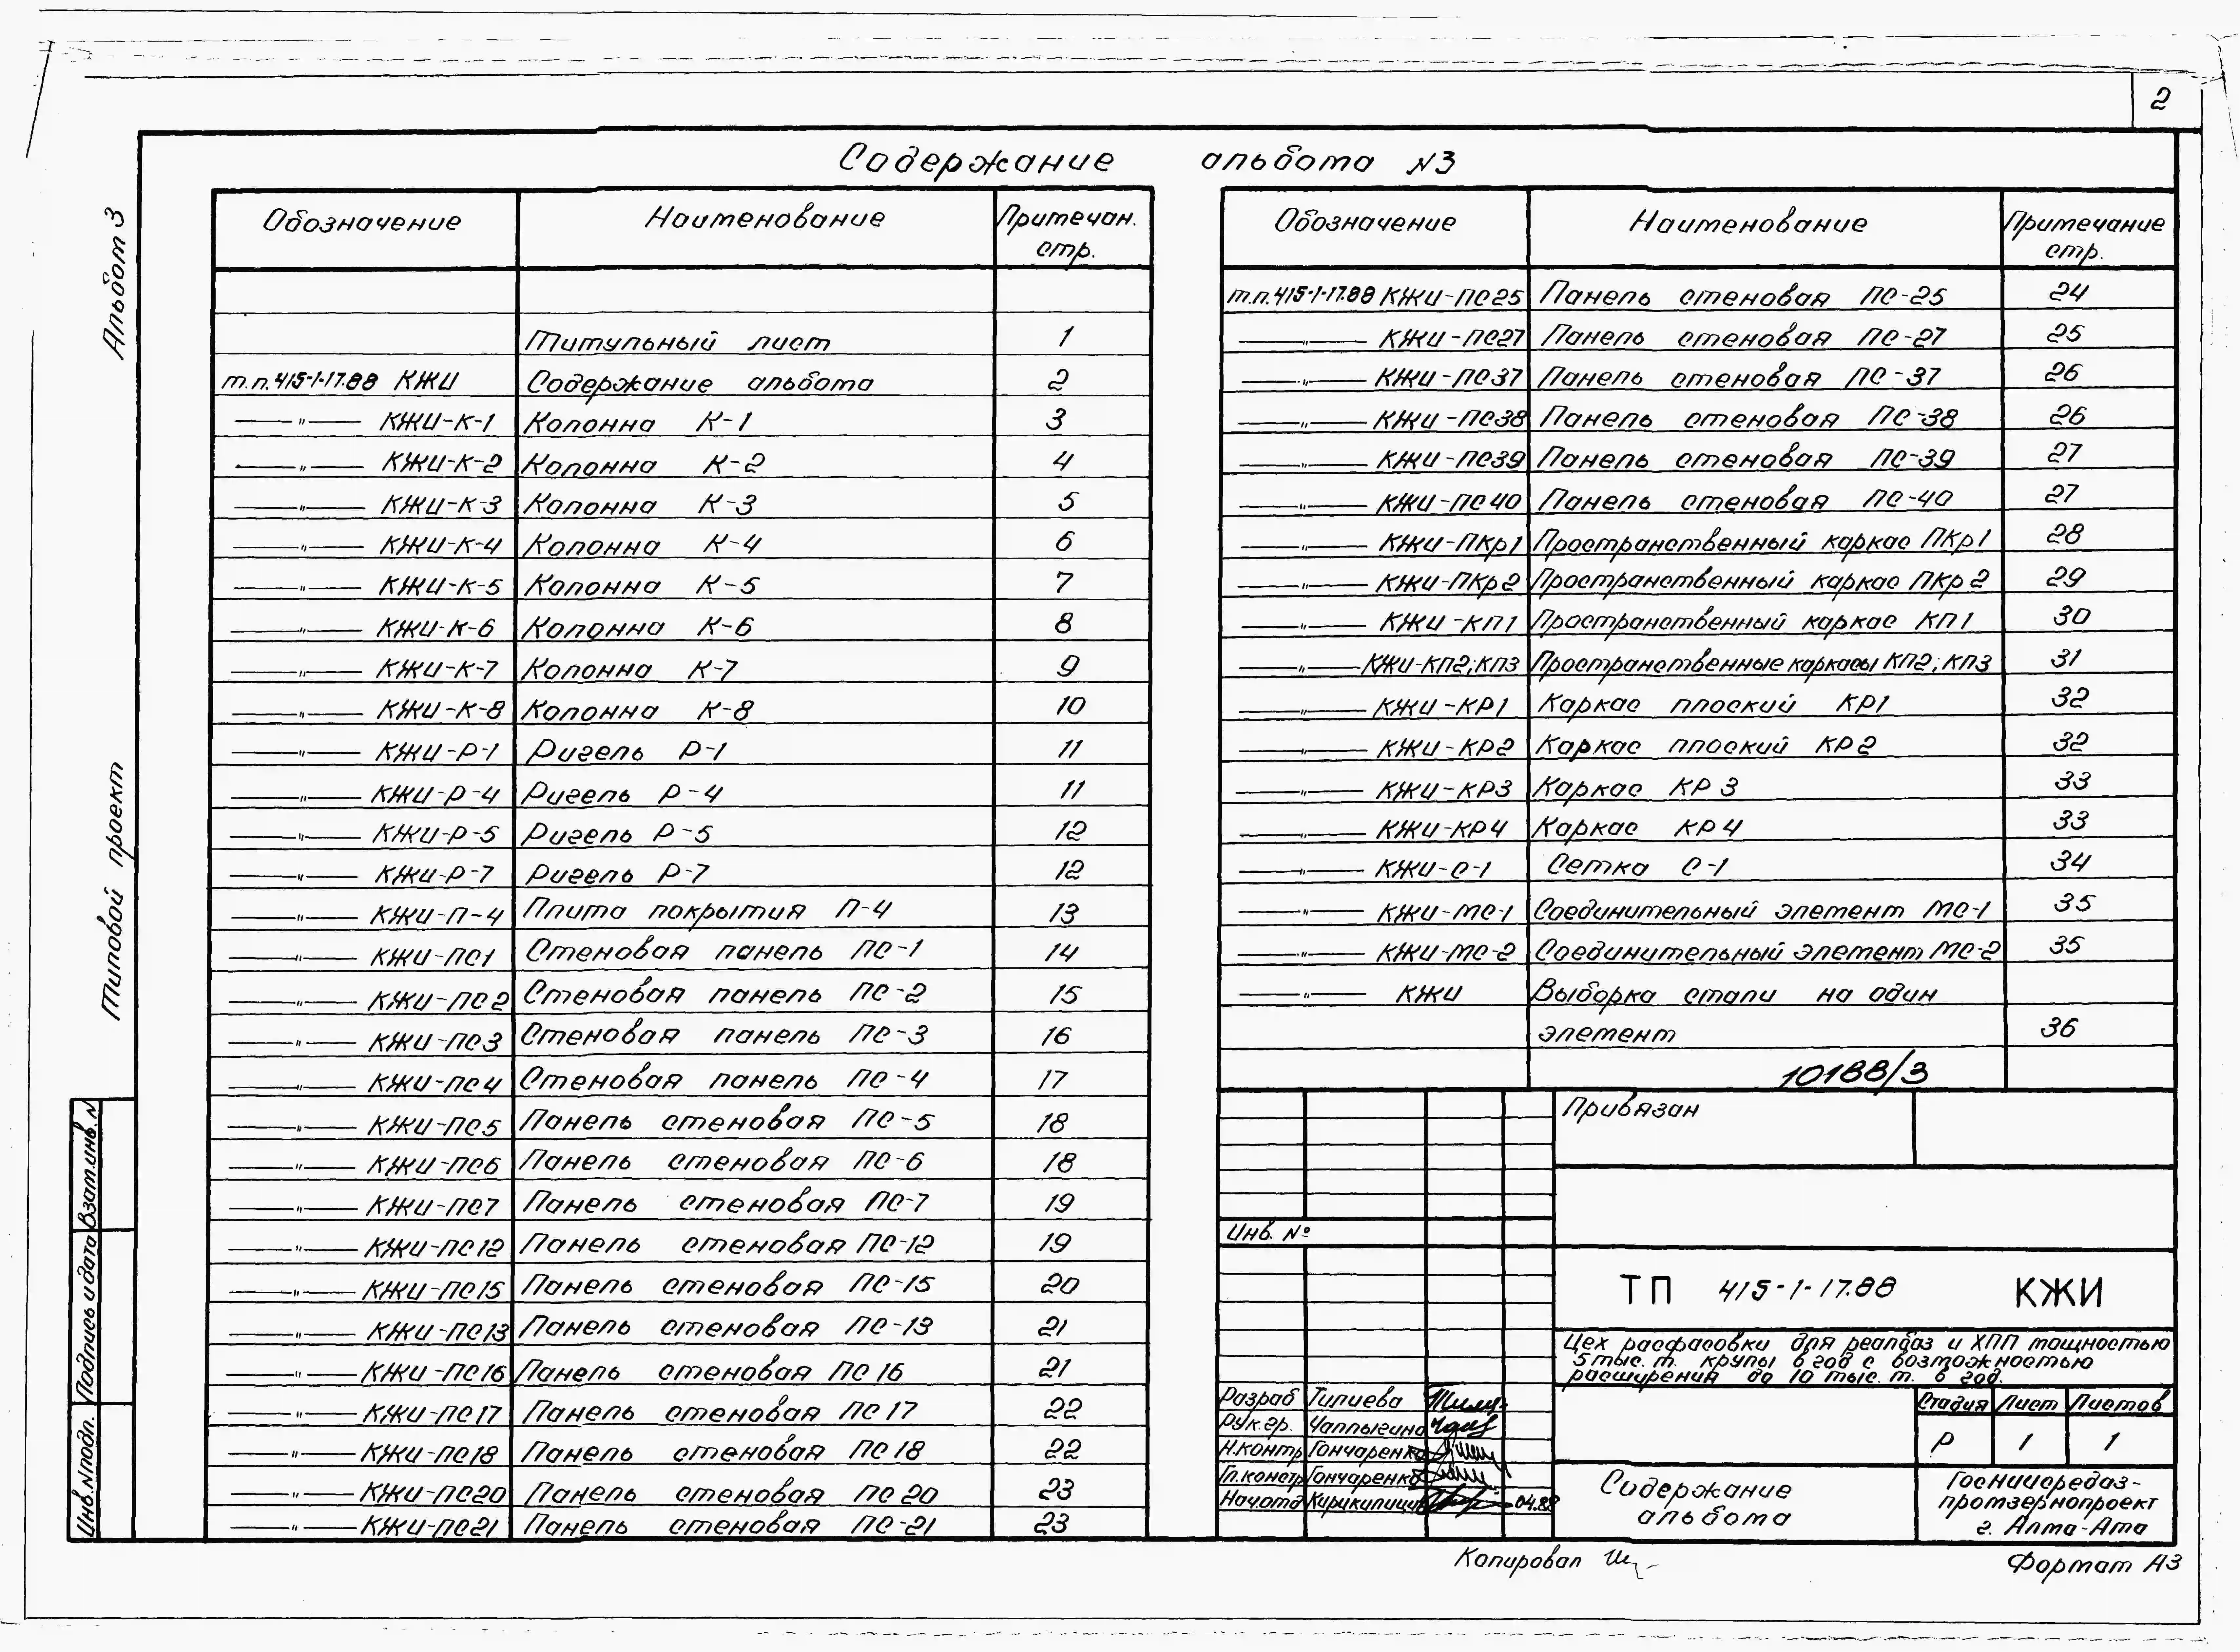 2
Содержание альбома №3
Альбом 3
Типовой проект
Обозначение Наименование Примечан. стр.
Титульный лист 1
т.п. 415-1-17.88 КЖИ Содержание альбома 2
—"— КЖИ-К-1 Колонна К-1 3
—"— КЖИ-К-2 Колонна К-2 4
—"— КЖИ-К-3 Колонна К-3 5
—"— КЖИ-К-4 Колонна К-4 6
—"— КЖИ-К-5 Колонна К-5 7
—"— КЖИ-К-6 Колонна К-6 8
—"— КЖИ-К-7 Колонна К-7 9
—"— КЖИ-К-8 Колонна К-8 10
—"— КЖИ-Р-1 Ригель Р-1 11
—"— КЖИ-Р-4 Ригель Р-4 11
—"— КЖИ-Р-5 Ригель Р-5 12
—"— КЖИ-Р-7 Ригель Р-7 12
—"— КЖИ-П-4 Плита покрытия П-4 13
—"— КЖИ-ПС1 Стеновая панель ПС-1 14
—"— КЖИ-ПС2 Стеновая панель ПС-2 15
—"— КЖИ-ПС3 Стеновая панель ПС-3 16
—"— КЖИ-ПС4 Стеновая панель ПС-4 17
—"— КЖИ-ПС5 Панель стеновая ПС-5 18
—"— КЖИ-ПС6 Панель стеновая ПС-6 18
—"— КЖИ-ПС7 Панель стеновая ПС-7 19
—"— КЖИ-ПС12 Панель стеновая ПС-12 19
—"— КЖИ-ПС15 Панель стеновая ПС-15 20
—"— КЖИ-ПС13 Панель стеновая ПС-13 21
—"— КЖИ-ПС16 Панель стеновая ПС 16 21
—"— КЖИ-ПС17 Панель стеновая ПС 17 22
—"— КЖИ-ПС18 Панель стеновая ПС 18 22
—"— КЖИ-ПС20 Панель стеновая ПС 20 23
—"— КЖИ-ПС21 Панель стеновая ПС-21 23
Обозначение Наименование Примечание стр.
т.п. 415-1-17.88 КЖИ-ПС25 Панель стеновая ПС-25 24
—"— КЖИ-ПС27 Панель стеновая ПС-27 25
—"— КЖИ-ПС37 Панель стеновая ПС-37 26
—"— КЖИ-ПС38 Панель стеновая ПС-38 26
—"— КЖИ-ПС39 Панель стеновая ПС-39 27
—"— КЖИ-ПС40 Панель стеновая ПС-40 27
—"— КЖИ-ПКр1 Пространственный каркас ПКр1 28
—"— КЖИ-ПКр2 Пространственный каркас ПКр2 29
—"— КЖИ-КП1 Пространственный каркас КП1 30
—"— КЖИ-КП2; КП3 Пространственные каркасы КП2; КП3 31
—"— КЖИ-КР1 Каркас плоский КР1 32
—"— КЖИ-КР2 Каркас плоский КР2 32
—"— КЖИ-КР3 Каркас КР3 33
—"— КЖИ-КР4 Каркас КР4 33
—"— КЖИ-С-1 Сетка С-1 34
—"— КЖИ-МС-1 Соединительный элемент МС-1 35
—"— КЖИ-МС-2 Соединительный элемент МС-2 35
—"— КЖИ Выборка стали на один
элемент 36
10188/3
Привязан
Инв. №
ТП 415-1-17.88 КЖИ
Цех расфасовки для реалбаз и ХПП мощностью
5 тыс. т. крупы в год с возможностью
расширения до 10 тыс. т. в год.
Разраб Тилиева
Рук.гр. Чаплыгина
Н.контр Гончаренко
Гл.констр Гончаренко
Нач.отд 04.88
Стадия Лист Листов
Р 1 1
Содержание
альбома
ГосНИИсредаз-
промзернопроект
г. Алма-Ата
Инв.№подл. Подпись и дата Взам.инв.№
Копировал
Формат А3